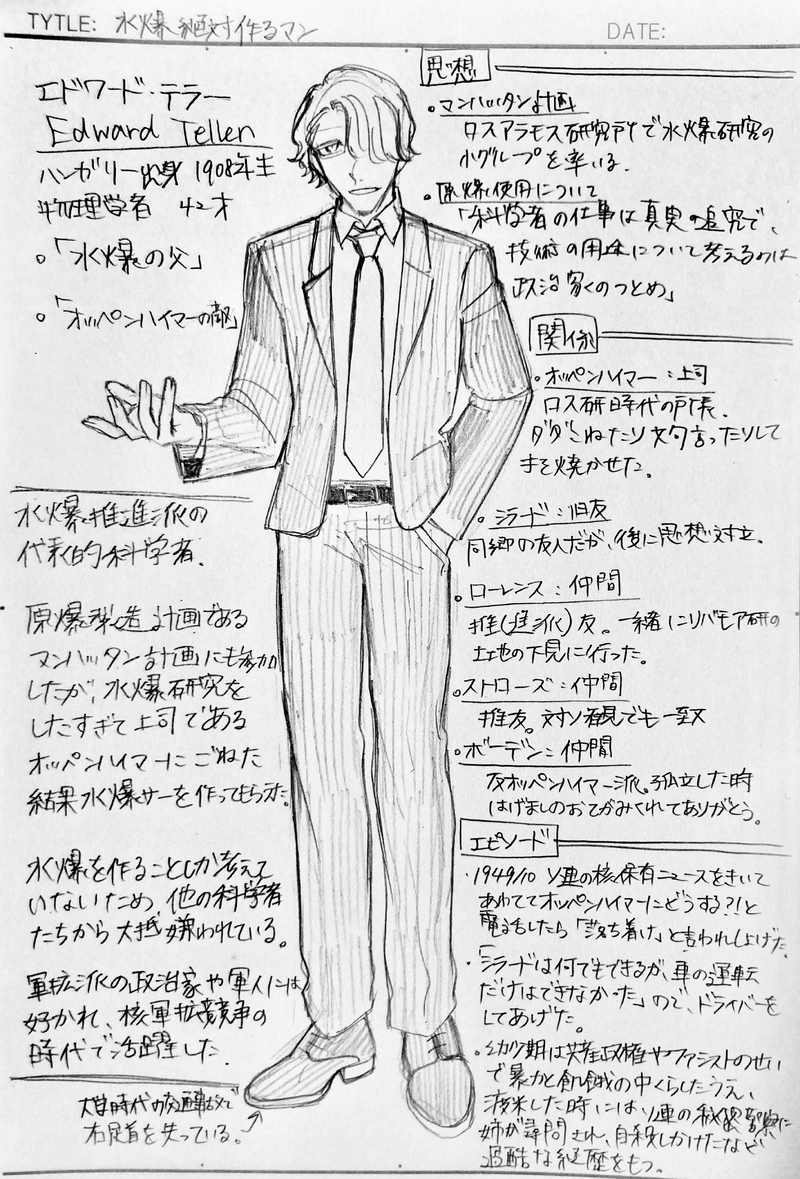 TYTLE: 水爆絶対作るマン
DATE:
エドワード・テラー
Edward Teller
ハンガリー出身 1908年生
物理学者 42才
。「水爆の父」
。「オッペンハイマーの敵」
水爆推進派の
代表的科学者.
原爆製造計画である
マンハッタン計画にも参加
したが、水爆研究を
したすぎて上司である
オッペンハイマーにごねた
結果水爆サーを作ってもらえた。
水爆を作ることしか考えて
いないため、他の科学者
たちから大抵嫌われている。
軍拡派の政治家や軍人には
好かれ、核軍拡競争の
時代で活躍した.
大学時代の交通事故で
右足首を失っている。
思想
・マンハッタン計画
ロスアラモス研究所で水爆研究の
小グループを率いる.
・原爆使用について
「科学者の仕事は真実の追究で、
技術の用途について考えるのは
政治家のつとめ」
関係
・オッペンハイマー:上司
ロス研時代の所長.
ダダこねたり文句言ったりして
手を焼かせた。
・シラード:旧友
同郷の友人だが、後に思想対立.
。ローレンス:仲間
推(進派)友。一緒にリバモア研の
土地の下見に行った。
。ストローズ:仲間
推友。対ソ観でも一致
・ボーデン:仲間
反オッペンハイマー派。孤立した時
はげましのおてがみくれてありがとう。
エピソード
・1949/10 ソ連の核保有ニュースをきいて
あわててオッペンハイマーにどうする?!と
電話したら「落ち着け」と言われしょげた。
・「シラードは何でもできるが、車の運転
だけはできなかった」ので、ドライバーを
してあげた。
・幼少期は共産政権やファシストのせい
で暴力と飢餓の中くらしたうえ、
渡米した時にはソ連の秘密警察に
姉が尋問され、自殺しかけたなど
過酷な経歴をもつ。